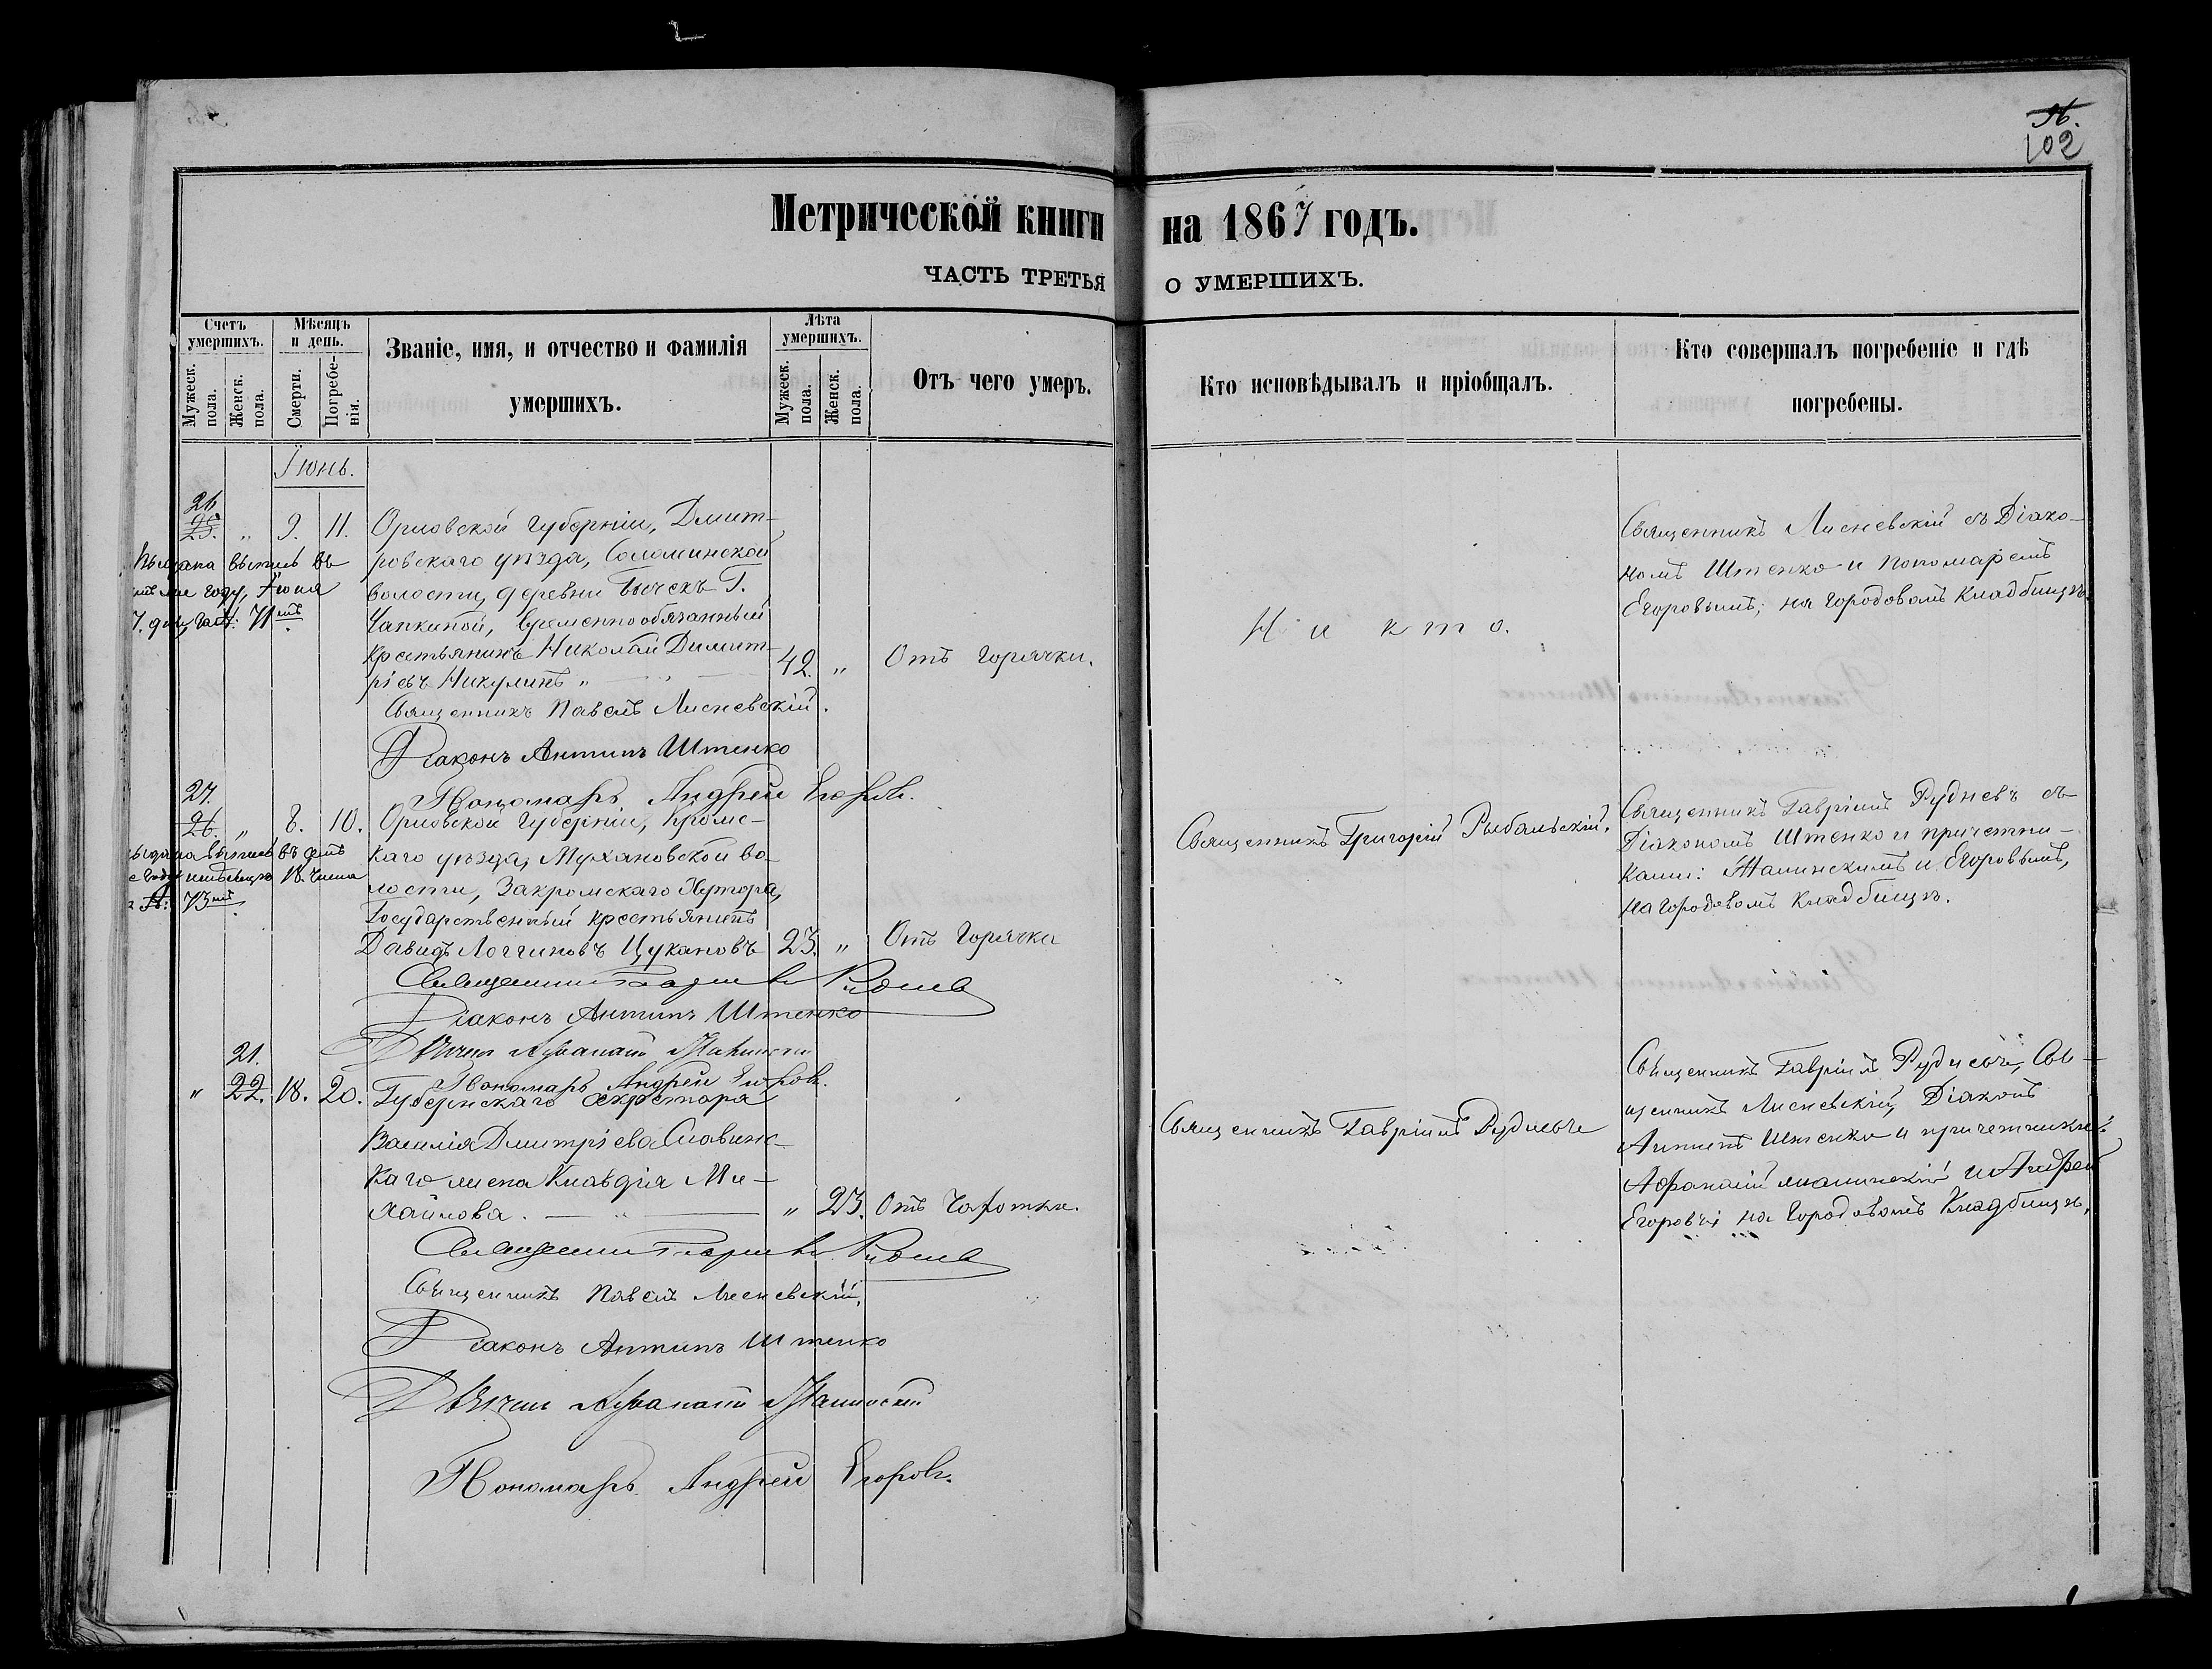 102
Метрической книги на 1867 годъ.
ЧАСТЬ ТРЕТЬЯ О УМЕРШИХЪ.
Счетъ умершихъ.
Мужеск. пола.
Женск. пола.
Мѣсяцъ и день.
Смерти.
Погребе-нія.
Званіе, имя, и отчество и фамилія
умершихъ.
Лѣта умершихъ.
Мужеск. пола.
Женск. пола.
Отъ чего умеръ.
Кто исповѣдывалъ и пріобщалъ.
Кто совершалъ погребеніе и гдѣ
погребены.
Іюнь.
26
25. „ 9. 11.
Орловской Губерніи, Дмит-
ровскаго уѣзда, Соломинской
волости, деревни Бычекъ Г.
Чапкиной, временнообязанный
Крестьянинъ Николай Димит-
ріевъ Никулинъ „ 42. „ Отъ Горячки.
Выдана выпись въ
году, Іюня
7. дня, 71мъ
Священникъ Павелъ Лисневскій.
Діаконъ Антипъ Штенко
Пономарь Андрей Егоровъ.
Никто.
Священникъ Лисневскій съ Діако-
номъ Штенко и пономаремъ
Егоровымъ, на Городовомъ Кладбищѣ.
27.
26. „ 8. 10.
Орловской Губерніи, Кромс-
каго уѣзда, Мухановской во-
лости, Закромскаго Хутора,
Государственный крестьянинъ
Давидъ Логгиновъ Цукановъ 23. „ Отъ Горячки
выдана выпись въ семъ
18. числа
73мъ
Священникъ Гавріилъ Рудневъ
Діаконъ Антипъ Штенко
Дьячекъ Афанасій
Пономарь Андрей Егоровъ.
Священникъ Григорій Рыбальскій.
Священникъ Гавріилъ Рудневъ съ
Діакономъ Штенко и причетни-
ками: и Егоровымъ,
на Городовомъ Кладбищѣ.
21.
„ 22. 18. 20.
Губернскаго Секретаря
Василія Дмитріева Славинс-
каго жена Клавдія Ми-
хайлова. „ 23. Отъ Чахотки.
Священникъ Гавріилъ Рудневъ
Священникъ Павелъ Лисневскій.
Діаконъ Антипъ Штенко
Дьячекъ Афанасій
Пономарь Андрей Егоровъ.
Священникъ Гавріилъ Рудневъ
Священникъ Гавріилъ Рудневъ, Свя-
щенникъ Лисневскій, Діаконъ
Антипъ Штенко и причетники:
Афанасій и Андрей
Егоровъ; на Городовомъ Кладбищѣ.